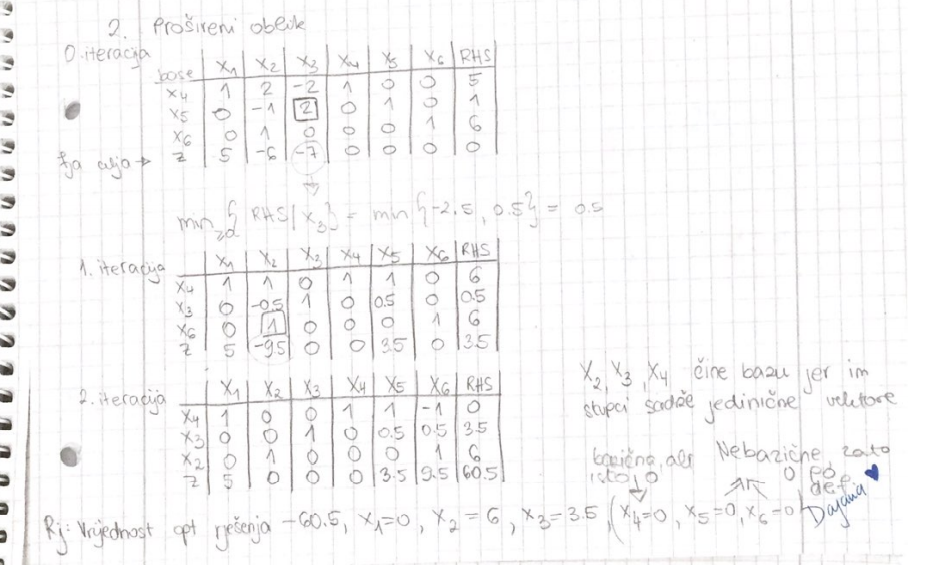 2. Prošireni oblik
0. iteracija
base x1 x2 x3 x4 x5 x6 RHS
x4 1 2 -2 1 0 0 5
x5 0 -1 2 0 1 0 1
x6 0 1 0 0 0 1 6
fja cilja → z 5 -6 -7 0 0 0 0
min { RHS/x3 } = min {-2.5, 0.5} = 0.5
1. iteracija x1 x2 x3 x4 x5 x6 RHS
x4 1 1 0 1 1 0 6
x3 0 -0.5 1 0 0.5 0 0.5
x6 0 1 0 0 0 1 6
z 5 -9.5 0 0 3.5 0 3.5
2. iteracija x1 x2 x3 x4 x5 x6 RHS
x4 1 0 0 1 1 -1 0
x3 0 0 1 0 0.5 0.5 3.5
x2 0 1 0 0 0 1 6
z 5 0 0 0 3.5 9.5 60.5
x2, x3, x4 čine bazu jer im
stupci sadrže jedinične vektore
bazična, ali
isto 0
Nebazične, zato
0 po
def.
Rj: Vrijednost opt rješenja -60.5, x1=0, x2=6, x3=3.5, (x4=0, x5=0, x6=0)
Dajana ♥